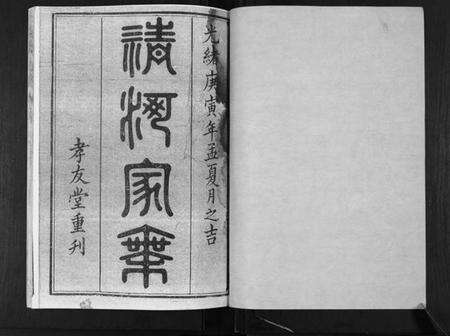 光緒庚寅年孟夏月之吉
清河家乘
孝友堂重刊